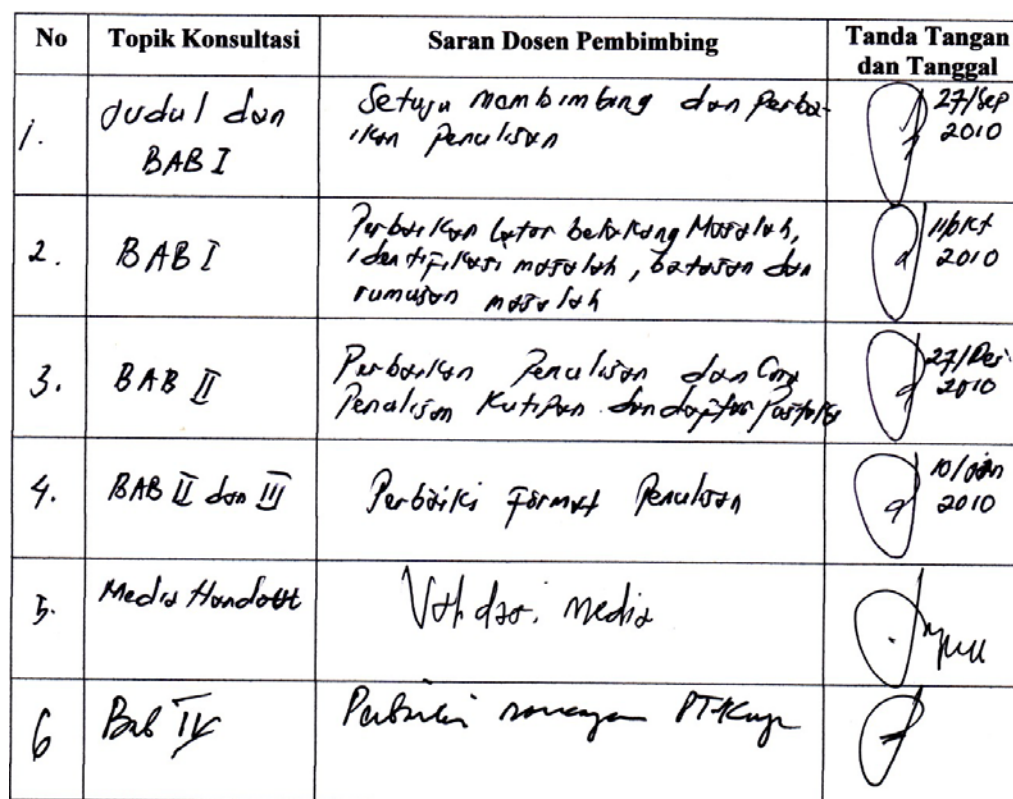 No
Topik Konsultasi
Saran Dosen Pembimbing
Tanda Tangan
dan Tanggal
1.
Judul dan
BAB I
Setuju membimbing dan perba-
ikan penulisan
27/Sep
2010
2.
BAB I
Perbaikan latar belakang Masalah,
identifikasi masalah, batasan dan
rumusan masalah
11/Okt
2010
3.
BAB II
Perbaikan Penulisan dan Cara
Penulisan Kutipan dan daftar Pustaka
27/Des
2010
4.
BAB II dan III
Perbaiki Format Penulisan
10/Jan
2010
5.
Media Handout
Validasi Media
6
Bab IV
Perbaiki